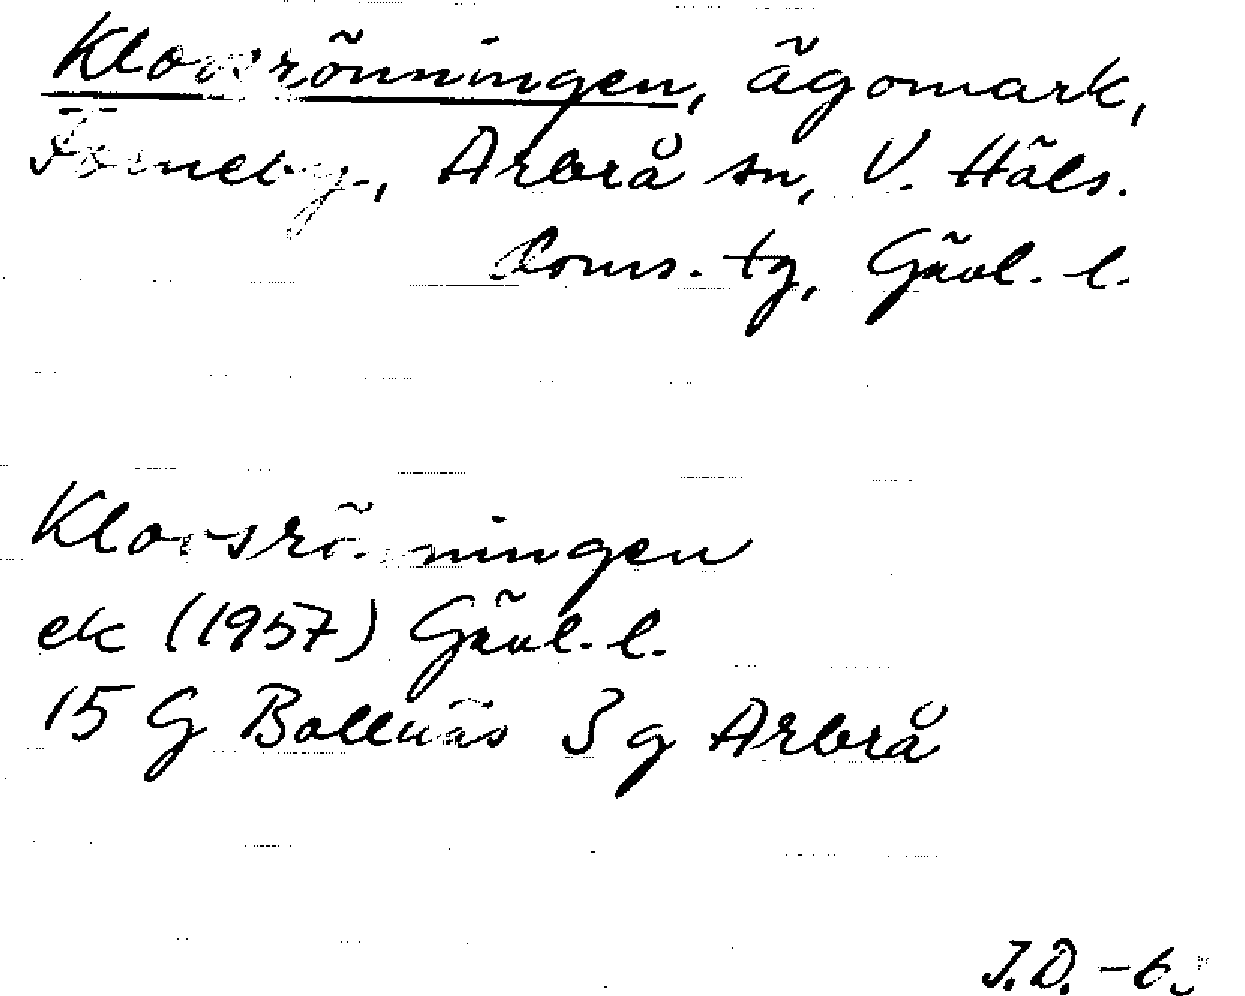 Klovsrönningen, ägomark,
Forneby, Arbrå sn, V. Häls.
doms. tg, Gävl. l.
Klovsrönningen
ek (1957) Gävl. l.
15 G Bollnäs 3 g Arbrå
J.D.